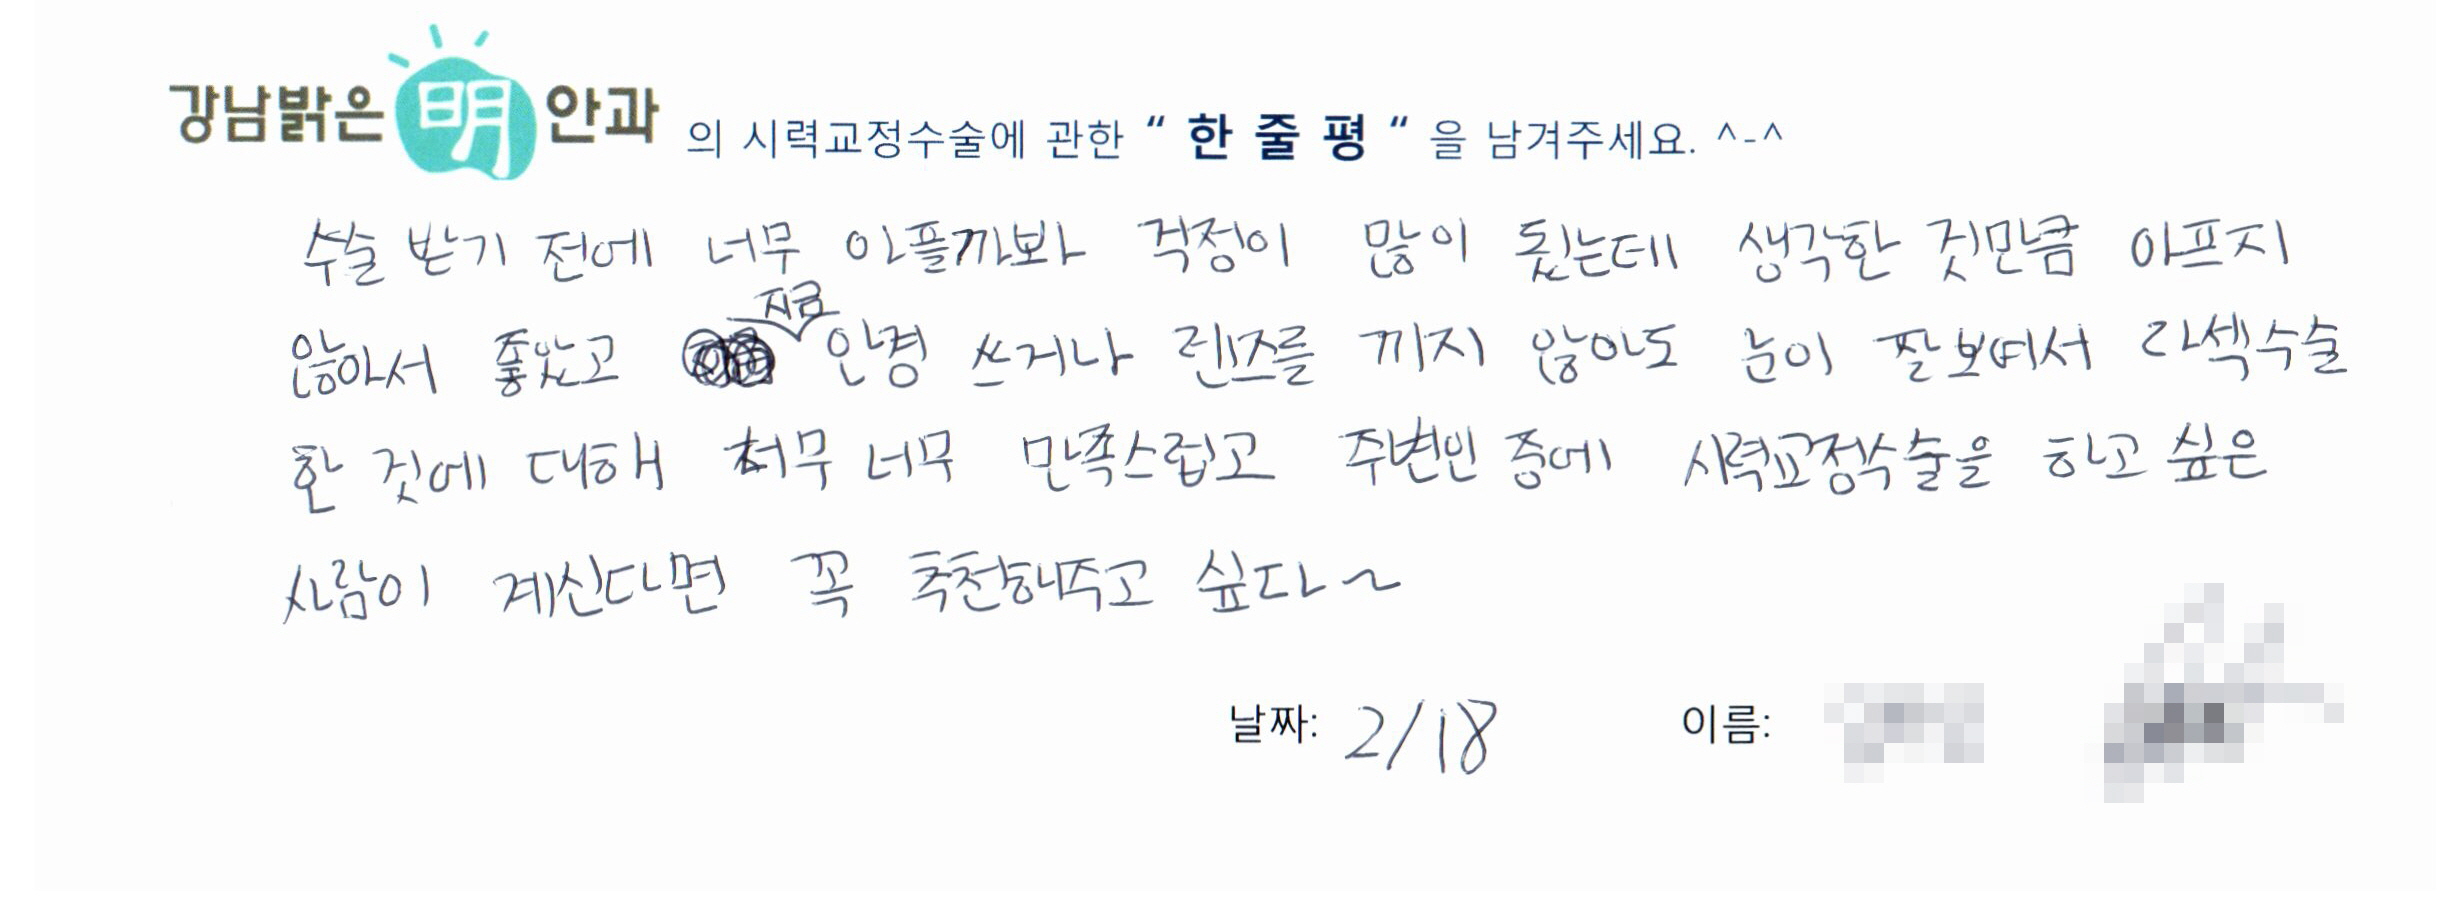 강남밝은 明 안과 의 시력교정수술에 관한 “ 한 줄 평 “ 을 남겨주세요. ^-^
수술 받기 전에 너무 아플까봐 걱정이 많이 됬는데 생각한 것만큼 아프지
않아서 좋았고 지금 안경 쓰거나 렌즈를 끼지 않아도 눈이 잘보여서 라섹수술
한 것에 대해 너무 너무 만족스럽고 주변인 중에 시력교정수술을 하고 싶은
사람이 계신다면 꼭 추천해주고 싶다~
날짜: 2/18 이름: